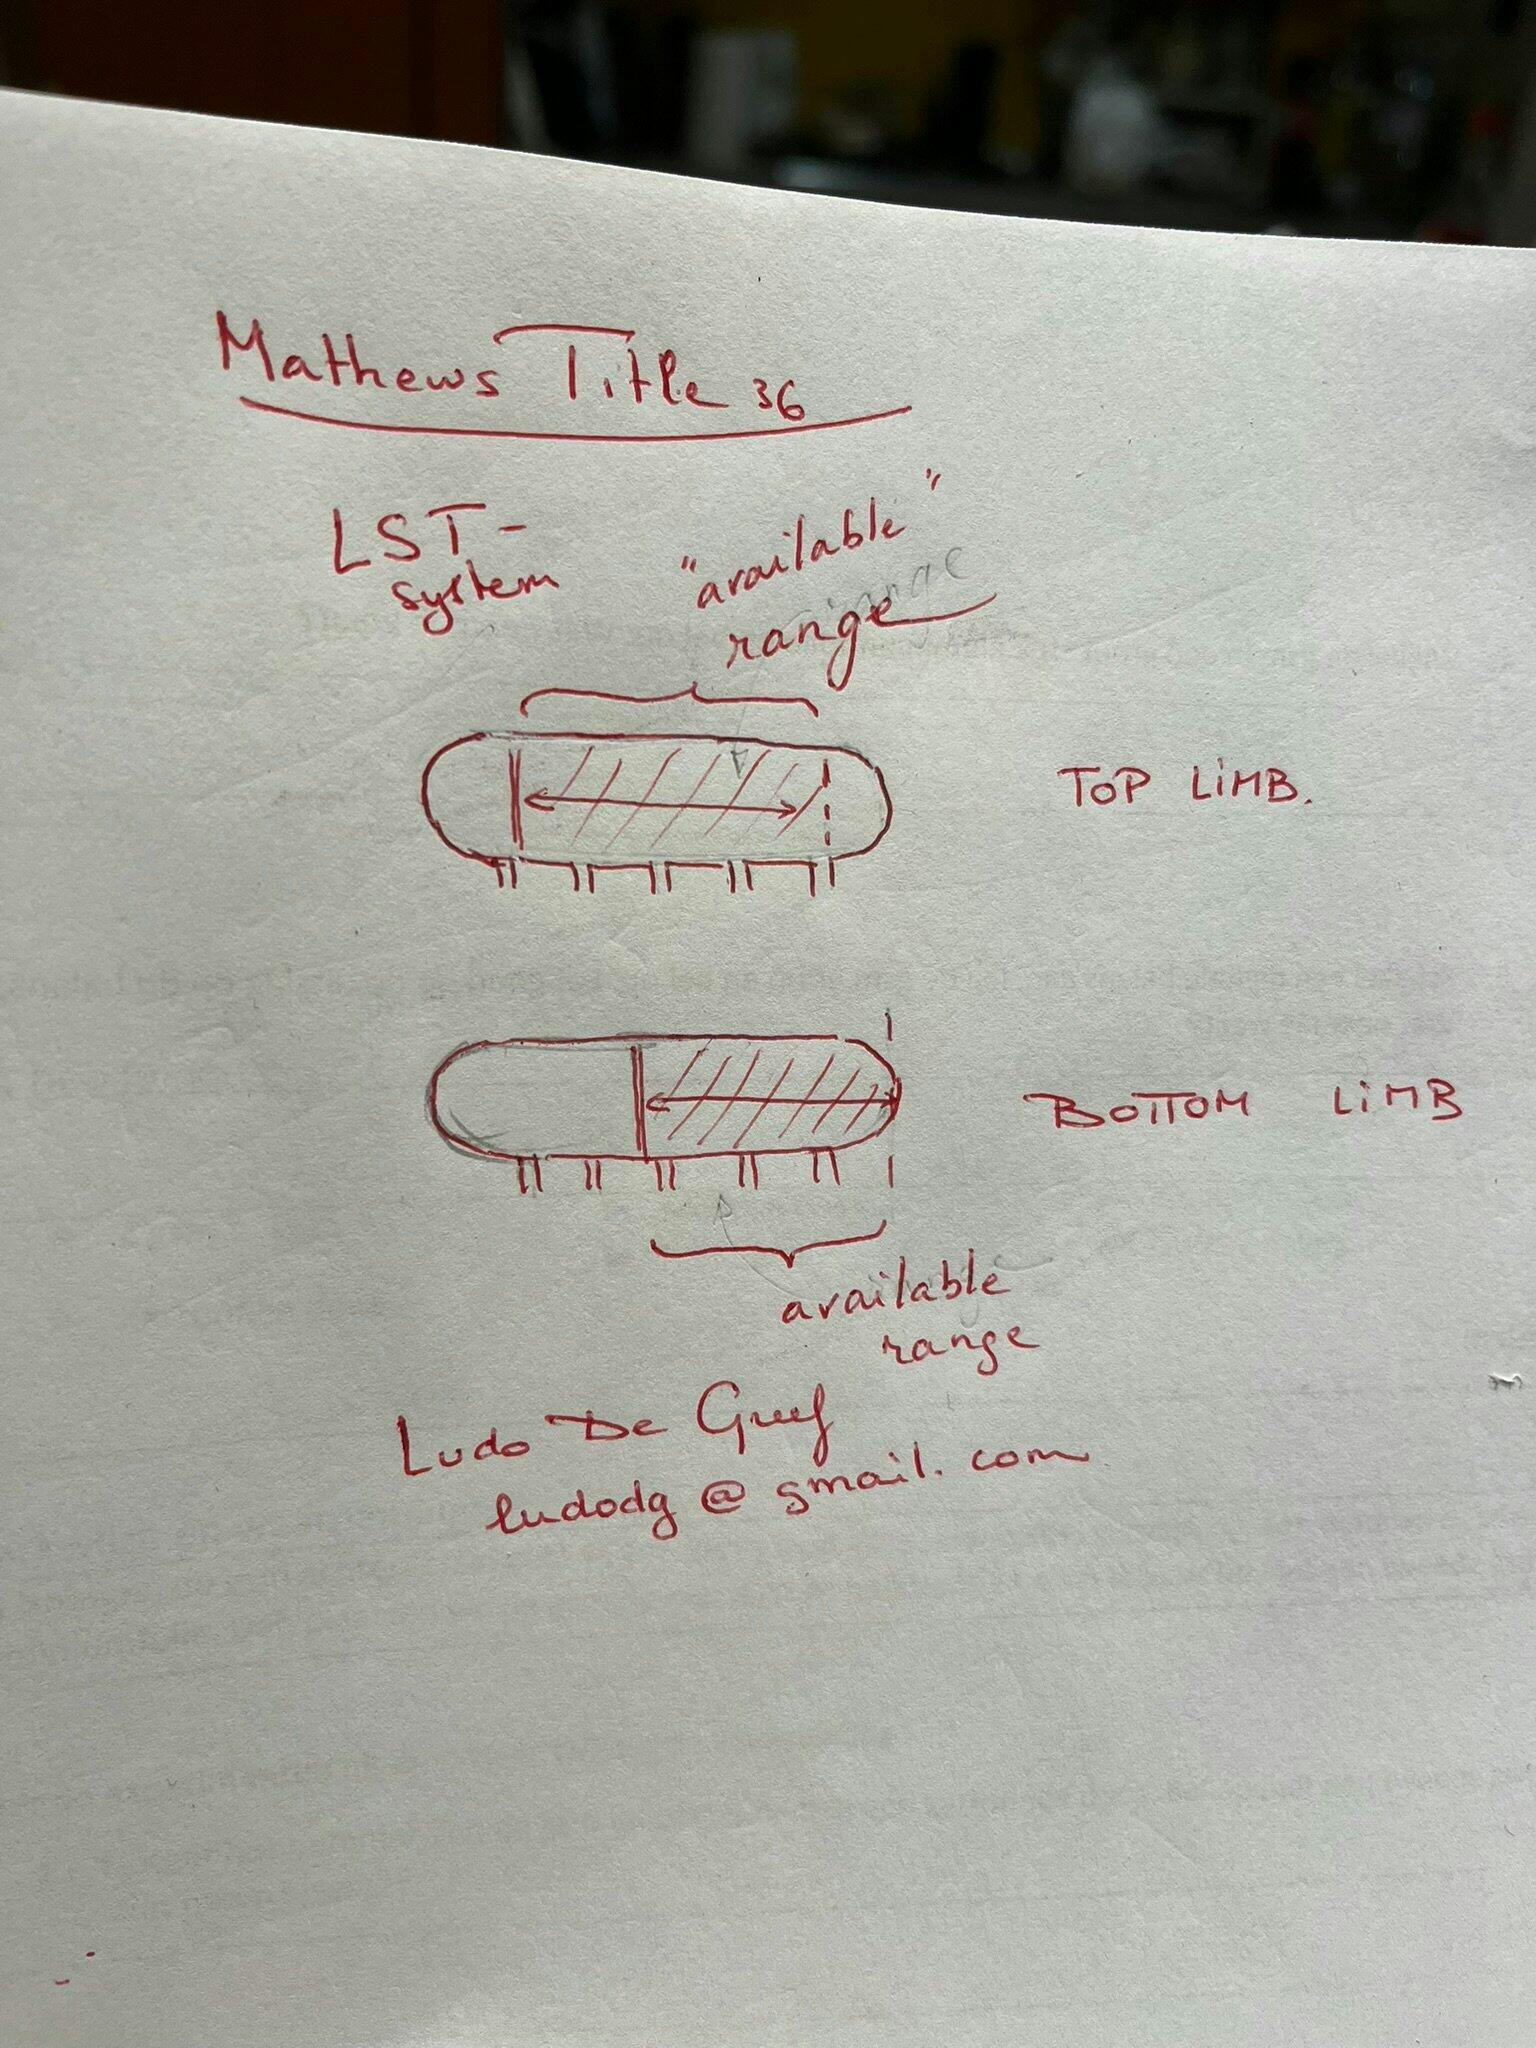 Mathews Title 36
LST-
system
"available"
range
TOP LIMB.
BOTTOM LIMB
available
range
Ludo De Greef
ludodg@gmail.com